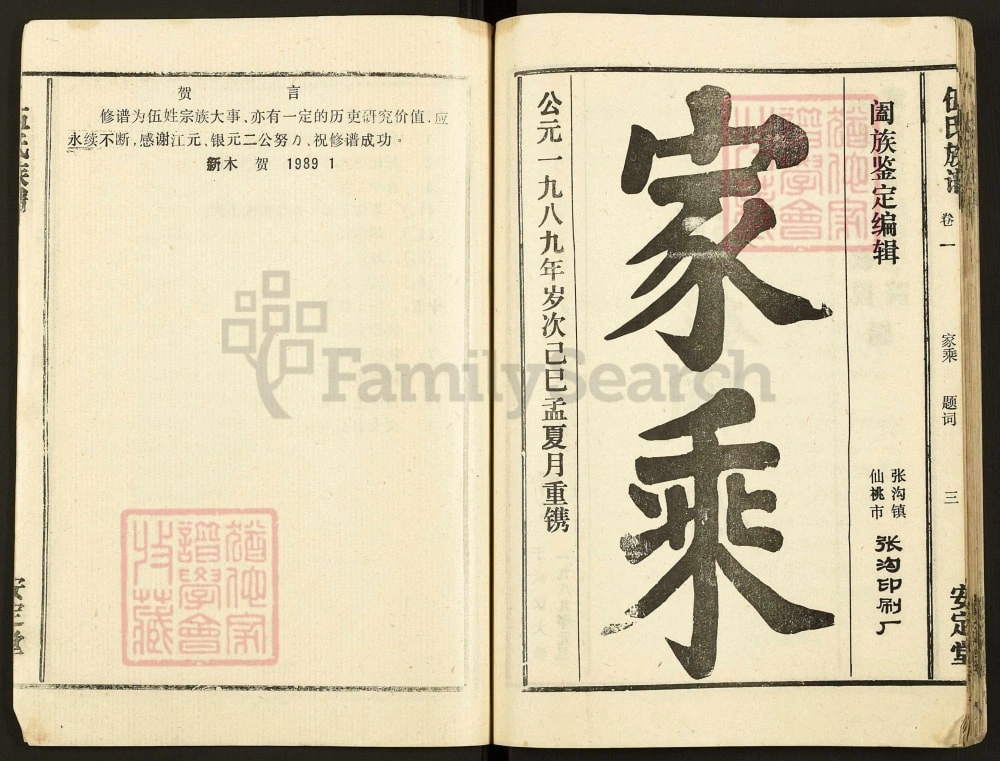 贺　言
修谱为伍姓宗族大事、亦有一定的历史研究价值，应
永续不断，感谢江元、银元二公努力、祝修谱成功。
新木　贺　1989 1
安定堂
伍氏族谱
卷一
家乘　题词
三
安定堂
阖族鉴定编辑
仙桃市
张沟镇
张沟印刷厂
家乘
公元一九八九年岁次己巳孟夏月重镌
猶他家
譜學會
收藏
猶他家
譜學會
收藏
FamilySearch